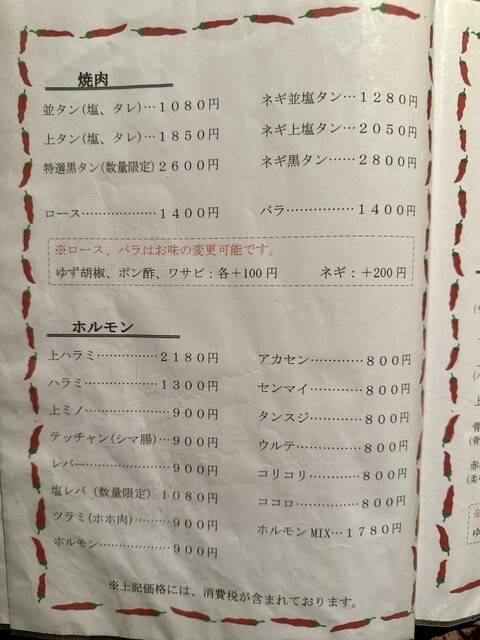 焼肉
並タン(塩、タレ)…1080円
上タン(塩、タレ)…1850円
特選黒タン(数量限定)2600円
ロース………………1400円
ネギ並塩タン…1280円
ネギ上塩タン…2050円
ネギ黒タン……2800円
バラ……………1400円
※ロース、バラはお味の変更可能です。
ゆず胡椒、ポン酢、ワサビ：各＋100円 ネギ：＋200円
ホルモン
上ハラミ……………2180円
ハラミ………………1300円
上ミノ………………900円
テッチャン(シマ腸)…900円
レバー………………900円
塩レバ（数量限定）1080円
ツラミ(ホホ肉)………900円
ホルモン……………900円
アカセン…………800円
センマイ…………800円
タンスジ…………800円
ウルテ……………800円
コリコリ…………800円
ココロ……………800円
ホルモンMIX…1780円
※上記価格には、消費税が含まれております。